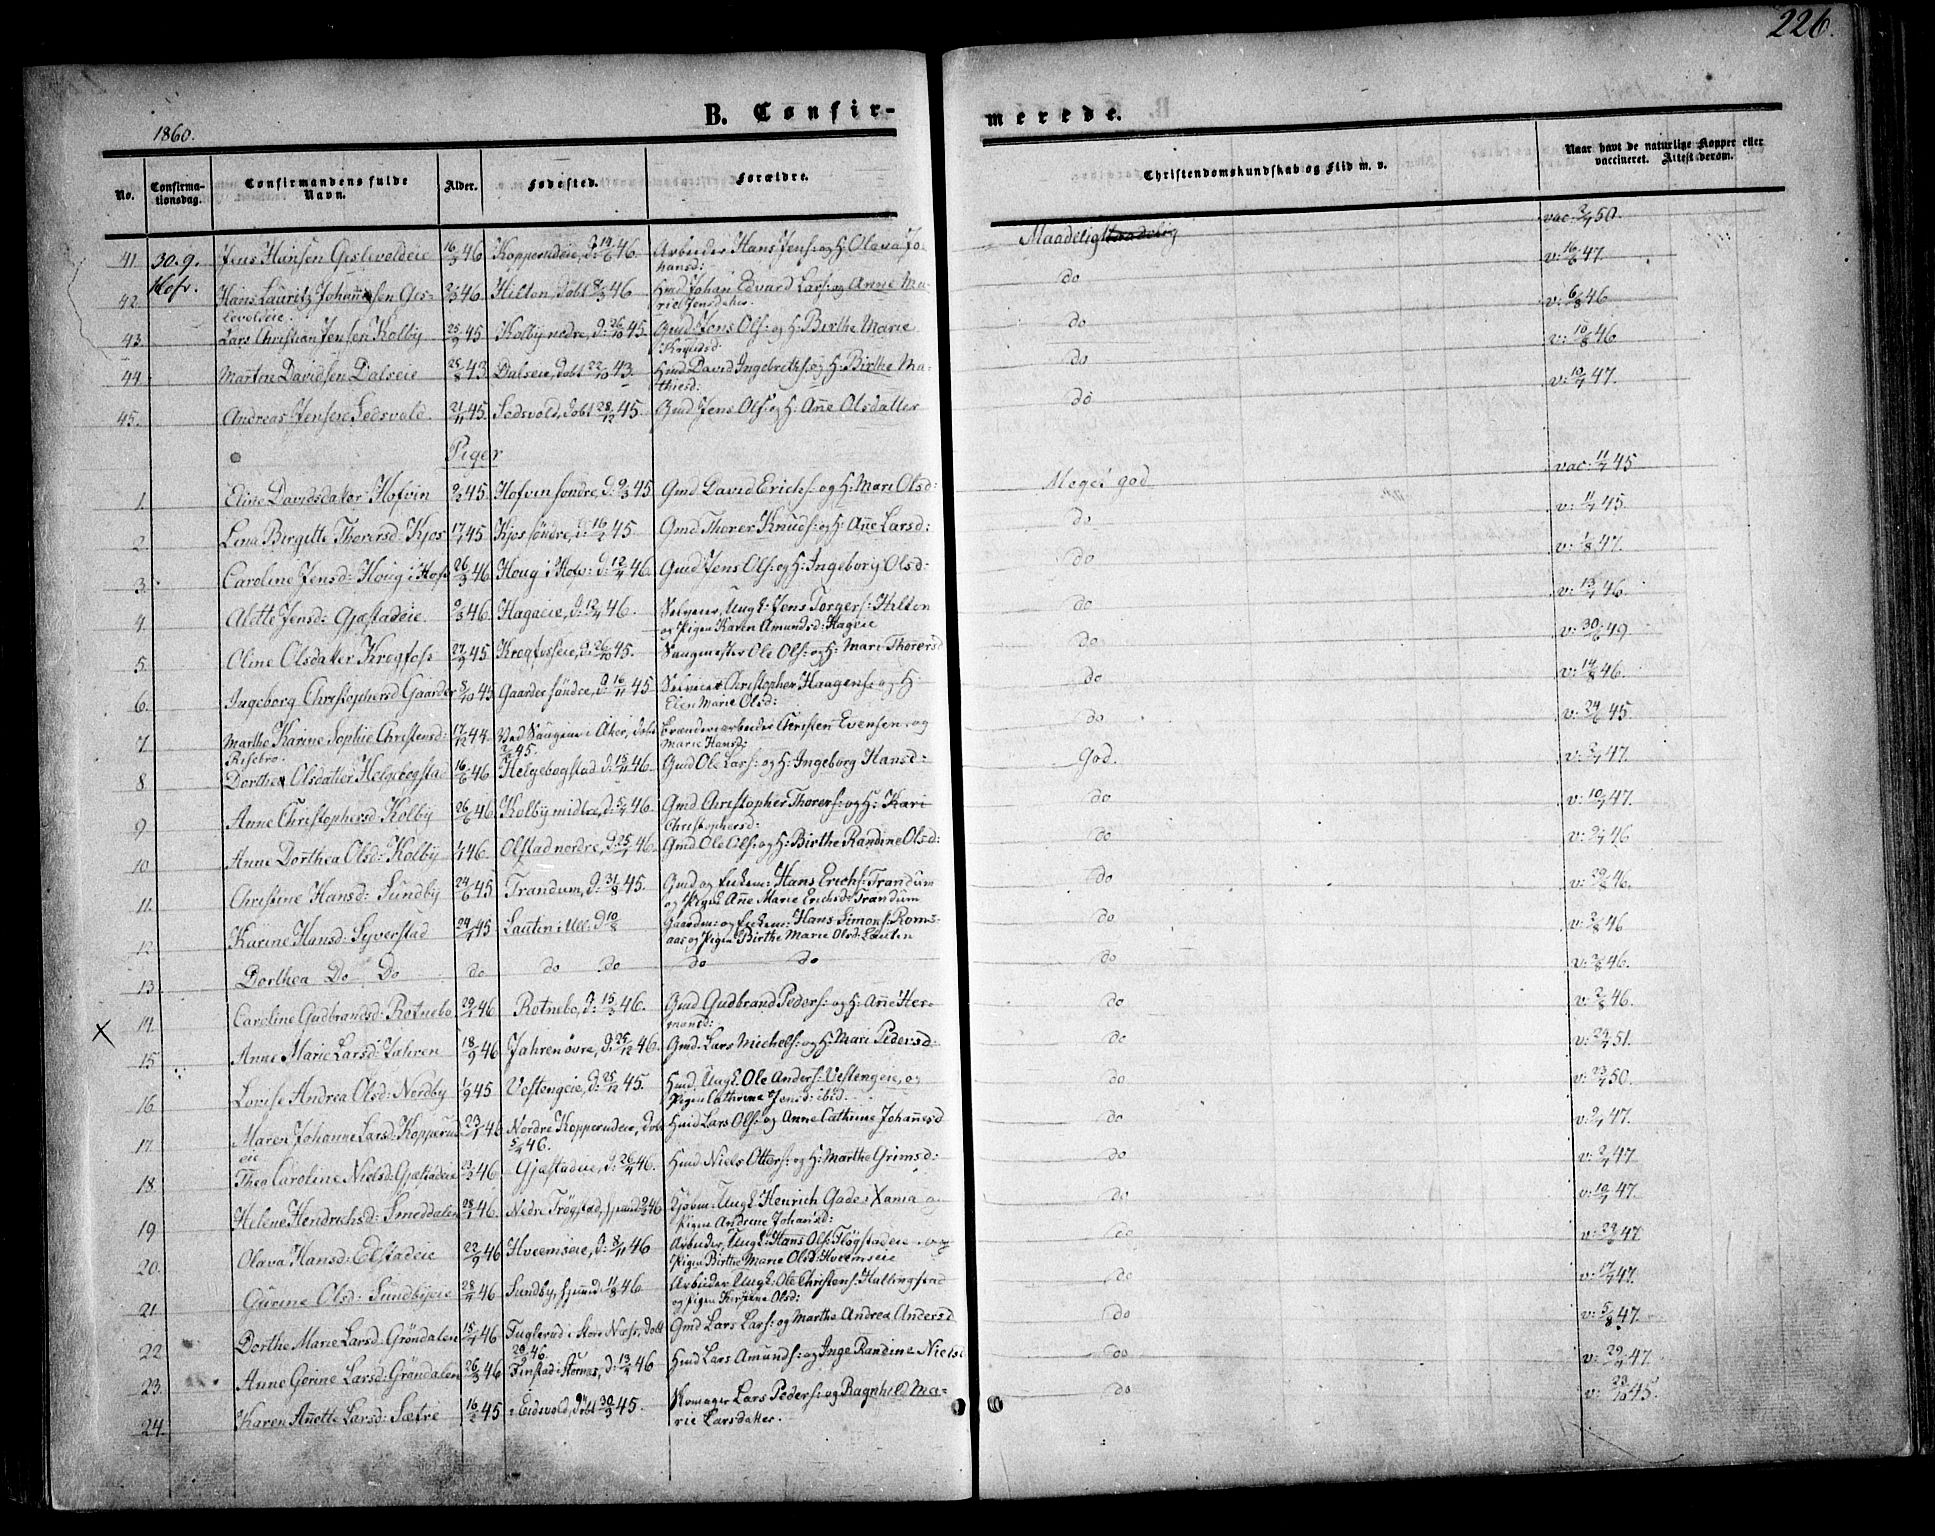 226.
B. Confirmerede.
1860.
No. Confirmationsdag. Confirmandens fulde Navn. Alder. Fødested. Forældre. Christendomskundskab og Flid m. v. Naar havt de naturlige Kopper eller vaccineret. Attest derom.
41 30.9. Jens Hansen 16/3 46 Kopperudeie, d: 14/6 46. Arbeider Hans Jens: og H: Olava Johansd: Maadelig vac: 2/7 50.
Hofv.
42. Hans Lauritz Johannesen 46 Hilton, døbt 8/3 46 Hmd Johan Edvard Lars: og Anne Marie Jensdatter. do v: 16/6 47.
43. Lars Christian Jensen Kolby 25/9 45 Kolby nedre, d: 26/10 45. Gmd Jens Ols: og H: Birthe Marie do v: 6/8 46
44. Marton Davidsen Dalseie 25/8 43 Dalseie, døbt 22/10 43. Hmd David Ingebreths: og H: Birthe Mathiesd: do v: 10/8 46.
45. Andreas Jensen Ledsvold 21/11 45. døbt 28/12 45. Gmd Jens Ols: og H: Anne Olsdatter do v: 10/7 47.
Piger
1. Eline Davidsdatter Hofvin 45. Hofvin søndre, d: 9/3 45 Gmd David Erichs: og H: Mari Olsd: Meget god vac: 11/7 45
2. Lena Birgitte Thorersd. Kjos 45 Kjos søndre, 45. Gmd Thorer Knuds: og H: Anne Larsd: do v: 11/7 45.
3. Caroline Jensd: Houg i Hofv 26/3 46 Houg i Hofv: d: 12/4 46. Gmd Jens Ols: og H: Ingeborg Olsd: do v: 1/8 47.
4. Alette Jensd: Gjæstadeie. 9/3 46. Hagaeie, d: 12/4 46. Selveier, Ungk: Jens Torgers: Hilton og Pigen Karen Amundsd: Hageie do v: 13/7 46.
5. Oline Olsdatter Krogfoss 27/9 45 Krogfosseie, d: 26/10 45. Saugmester Ole Ols: og H: Mari Thorersd do v: 30/6 49
6. Ingeborg Christophersd Gaarder 8/10 45 Gaarder søndre, d: 16/11 45 Selveier Christopher Haagens: og H: Elen Marie Olsd: do v: 14/8 46.
7. Marthe Karine Sophie Christensd: Risebro. 17/12 44. Ved Saugene i Aker, døbt 45. Brænderiarbeider Christen Evensen og Marie Hansd: do v: 24/6 45
8 Dorthea Olsdatter Helgebogstad 16/6 46 Helgebogstad d: 15/11 46. Gmd Ole Lars: og H: Ingeborg Hansd: God. v: 2/7 47.
9 Anne Christophersd Kolby 26/6 46 Kolby midtre, d: 5/7 46. Gmd Christopher Thorers: og H: Kari Christophersd: do v: 10/7 47.
10 Anne Dorthea Olsd: Kolby 46. Olstad nordre, d: 25/7 46. Gmd Ole Ols: og H: Birthe Randine Olsd: do v: 2/7 46
11. Christine Hansd: Sundby 24/6 45 Trandum, d: 31/8 45. Gmd og Enkem: Hans Erichs: Trandum og Pigen Anne Marie Erichsd: Trandum do v: 29/8 46.
12. Karine Hansd: Syverstad 24/7 45 Lauten i Ull: d 10/8 Gaardm: og Enkem: Hans Simons: Romsaas og Pigen Birthe Marie Olsd: Lauten do v: 2/8 46
13. Dorthea Do Do do do do do do do v: 2/8 46.
14. Caroline Gudbrandsd: Rotnebo 46 Rotnebo, d: 15/3 46. Gmd Gudbrand Peders: og H: Anne Hermansd: do v: 2/8 46.
X
15 Anne Marie Larsd: Jahren 18/9 46 Jahren øvre, d: 25/12 46. Gmd: Lars Michels: og H: Mari Pedersd: do v: 51.
16. Lovise Andrea Olsd: Nordby 1/9 45 Vestengeie, d: 25/12 45. Hmd, Ungk. Ole Anders: Vestengeie, og Pigen Cathrine Jensd: ibid. do v: 23/7 50.
17. Maren Johanne Larsd: Kopperudeie 46 Nordre Kopperudeie, døbt 5/4 46. Hmd Lars Ols: og Anne Cathrine Johannesd do v: 2/7 47.
18. Thea Caroline Nielsd: Gjæstadeie 46 Gjæstadeie, d: 26/4 46. Hmd Niels Otters: og H: Marthe Grimsd: do v: 2/7 47
19. Helene Hendrichsd: Smeddalen 46. Nedre Trøgstad, 46 Ungk: Henrich Gades og Pigen Andrine Johansd: do v: 10/7 47.
20. Olava Hansd: Elstadeie 22/9 46 Hveemseie, d: 8/11 46 Arbeider, Ungk: Hans Ols: Fløgstadeie og Pigen Birthe Marie Olsd: Hveemseie do v: 29/6 47
21. Gurine Olsd: Sundbyeie 28/7 46 Sundby, hjemmed 46 Arbeider Ungk: Ole Christens: Hallingstad og Pigen Kirstine Olsd: do v: 17/7 47.
22 Dorthe Marie Larsd: Grøndalen 46 Fuglerud i Store Næs:, døbt 46. Gmd Lars Lars: og Marthe Andrea Andersd do v: 5/8 47.
23. Anne Gerine Larsd: Grøndalen 26/3 46 Finstad i Stornæs, d: 13/4 46 Hmd Lars Amunds: og Inge Randine Niels: do v: 29/7 47.
24. Karen Anette Larsd: Sætre 16/2 45 i Eidsvold, døbt 30/3 45. Lars Peders: og Ragnhild Marie Larsdatter. do v: 45.